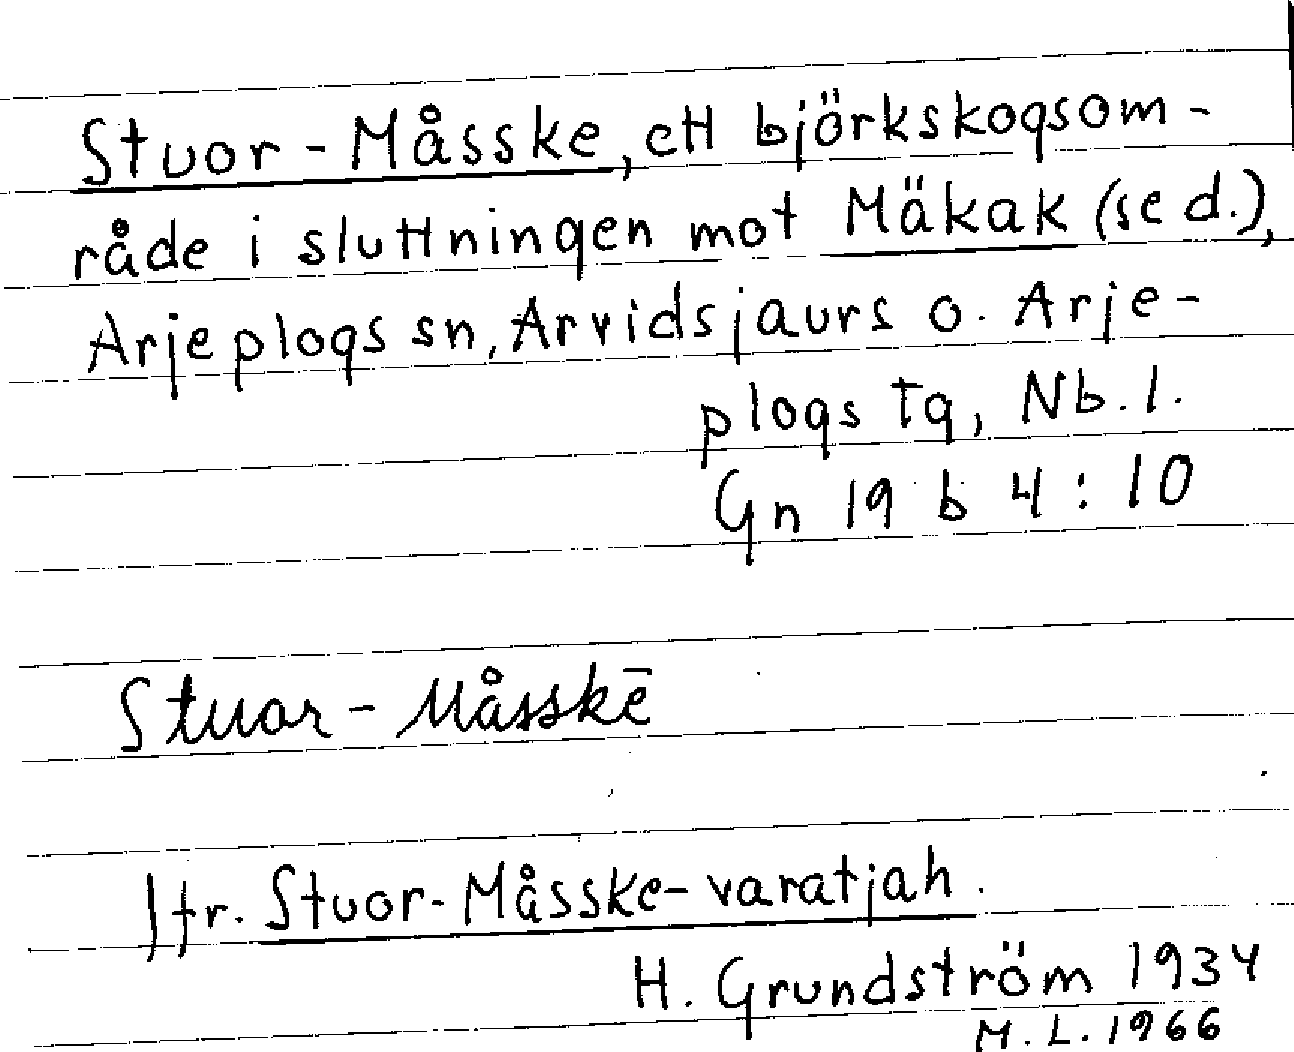 Stuor-Måsske, ett björkskogsom-
råde i sluttningen mot Mäkak (se d.),
Arjeplogs sn, Arvidsjaurs o. Arje-
plogs tg, Nb. l.
Gn 19 b 4:10
Stuor-Måsskē
Jfr. Stuor-Måsske-varatjah.
H. Grundström 1934
M. L. 1966